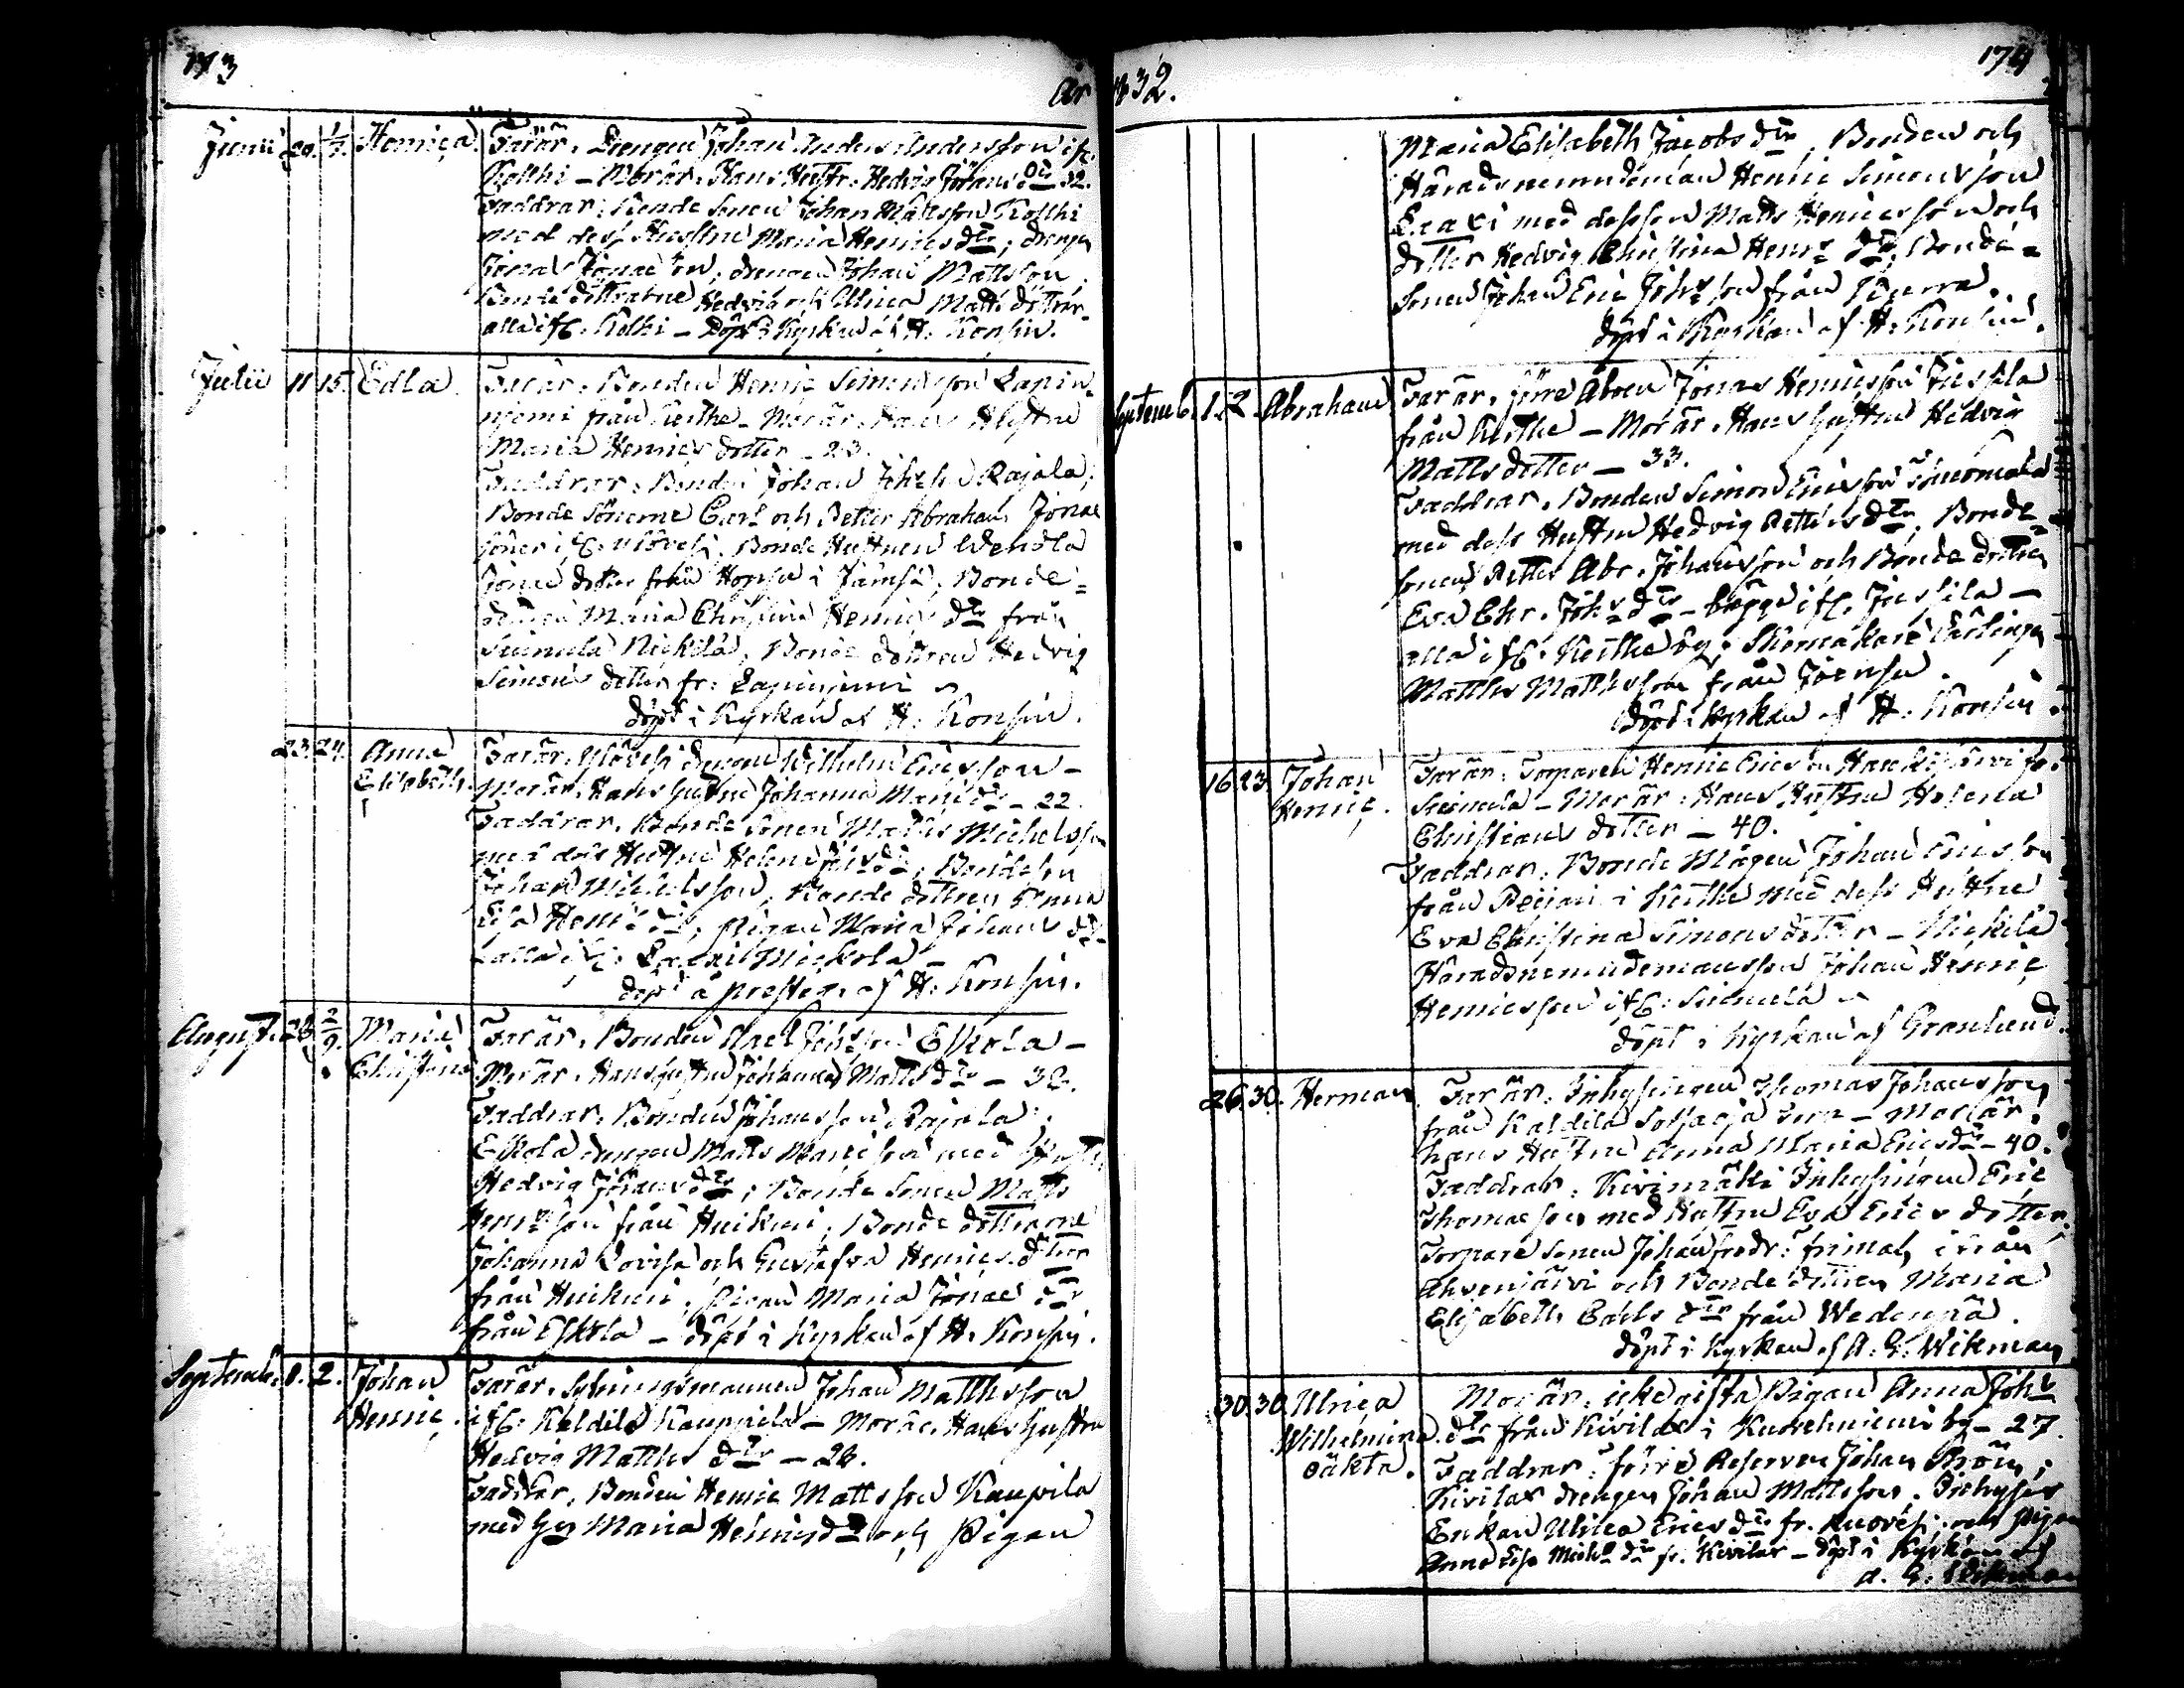 173
År
Junii 20. 1/7. Henrica. Far är, Drengen Johan Anders Andersson ifr.
Kolkki – Mor är, Hans Hustr. Hedvig Johans dr 32.
Faddrar: Bonde sonen Johan Mattsson Kolkki
med dess Hustru Maria Henrics dtr; drengen
Jonas Jonae son, drengen Johan Mattsson
Bonde döttrarne Hedvig och Ulrica Matts döttrar
alla ifr. Kolki – Döpt i Kyrkan af H. Konsin.
Julii 11 15. Edla. Far är, Bonden Henric Simonsson Lapin
niemi från Keithe – Mor är, Hans Hustru
Maria Henrics dotter – 23.
Faddrar: Bonden Johan Rajala;
Bonde Sönerne Carl och Petter Abraham Jonae
söner, Bonde Hustrun Wendla
Jonae dotter från Hopsu i Jämsä; Bonde=
dottren Maria Christina Henrics dtr från
Seimula Nickilä, Bonde dottren Hedvig
Simons dotter fr: Lapinniemi
döpt i Kyrkan af H. Konsin.
23. 24. Anna Elisabeth. Far är, drengen Wilhelm Ericsson –
Mor är, Hans Hustru Johanna dr – 22.
Faddrar, Bonde sonen Matts Michelsson
med dess Hustru Helena dr; Bonde son
Johan Michelsson, Bonde dottren Anna
Lisa Henr: dr, Pigan Maria Johans dr
alla
döpt å prestg. af H. Konsin.
August. 28 2/9. Maria Christina. Far är, Bonden Axel Johsson Eskola –
Mor är, Hans Hustru Johanna Matts dr – 32.
Faddrar, Bonden Johansson Rajala;
Eskola drengen Matts med Hustru
Hedvig Johans dtr; Bonde Sonen Matts
Henrsson från Huikuri; Bonde döttrarne
Johanna Lovisa och Gustafva Henrics döttrar
från Huikuri, Pigan Maria Jonae dtr
från Eskola – döpt i Kyrkan af H. Konsin.
Septemb. 1. 2. Johan Henric. Far är, Sytningsmannen Johan Matthsson
ifr: Kaldila Kauppila – Mor är, Hans Hustru
Hedvig Matths dtr – 28.
Faddrar, Bonden Henric Mattsson Kaupila
med Hu Maria Henrics dr och Pigan
1832.
174
Maria Elisabeth Jacobs dtr, Bonden och
Häradsnemndeman Henric Simonsson
med dess son Matts Henricsson och
dotter Hedvig Christina Henrs dtr, Bonde=
sonen Johan Eric Johsson från
döpt i Kyrkan af H. Konsin.
Septemb. 1. 2. Abraham. Far är, förre Åboen Jonas Henricsson Jussila
från Keithe – Mor är, Hans Hustru Hedvig
Matts dotter – 33.
Faddrar, Bonden Simon Ericsson
med dess Hustru Hedvig Petters dtr, Bonde
sonen Petter Abr. Johansson och Bonde dottren
Eva Chr. Johs dtr – begge ifr. Jussila –
alla ifr: Keithe by; Skomakare Lärlingen
Matths Matthsson från Joensu.
Döpt i Kyrkan af H. Konsin.
16. 23. Johan Henric. Far är: Torparen Henric Ericsson
Seimula – Mor är: Hans Hustru Helena
Christians dotter – 40.
Faddrar: Bonde Mågen Johan Ericsson
från i Keithe med dess Hustru
Eva Christina Simons dotter – Nickilä
Häradsnemndemansson Johan Henric
Henricsson ifr: Seimula
döpt i Kyrkan af Granlund.
26. 30. Herman. Far är, Inhysingen Thomas Johansson
från Kaldila torp – Mor är,
hans Hustru Anna Maria Erics dtr – 40.
Faddrar: Kivimäki Inhysingen Eric
Thomasson med Hustru Eva Erics dotter,
Torpare sonen Johan Fredr: Friman ifrån
Ahvenjärvi och Bonde dottren Maria
Elisabeth Carls dtr från Wedenpä.
döpt i Kyrkan af A. G. Wikman
30. 30. Ulrica Wilhelmina. oäkta. Mor är: icke gifta Pigan Anna Johs
dtr från Kivilax i Kuorehniemi by – 27.
Faddrar: förre Reserven Johan;
Kivilax drengen Johan Mattsson. Inhyses
Enkan Ulrica Erics dtr fr. Kuorevesi; och Pigan
Anna Lisa Mich dtr fr. Kivilax – döpt i Kyrkan af
A. G. Wikman